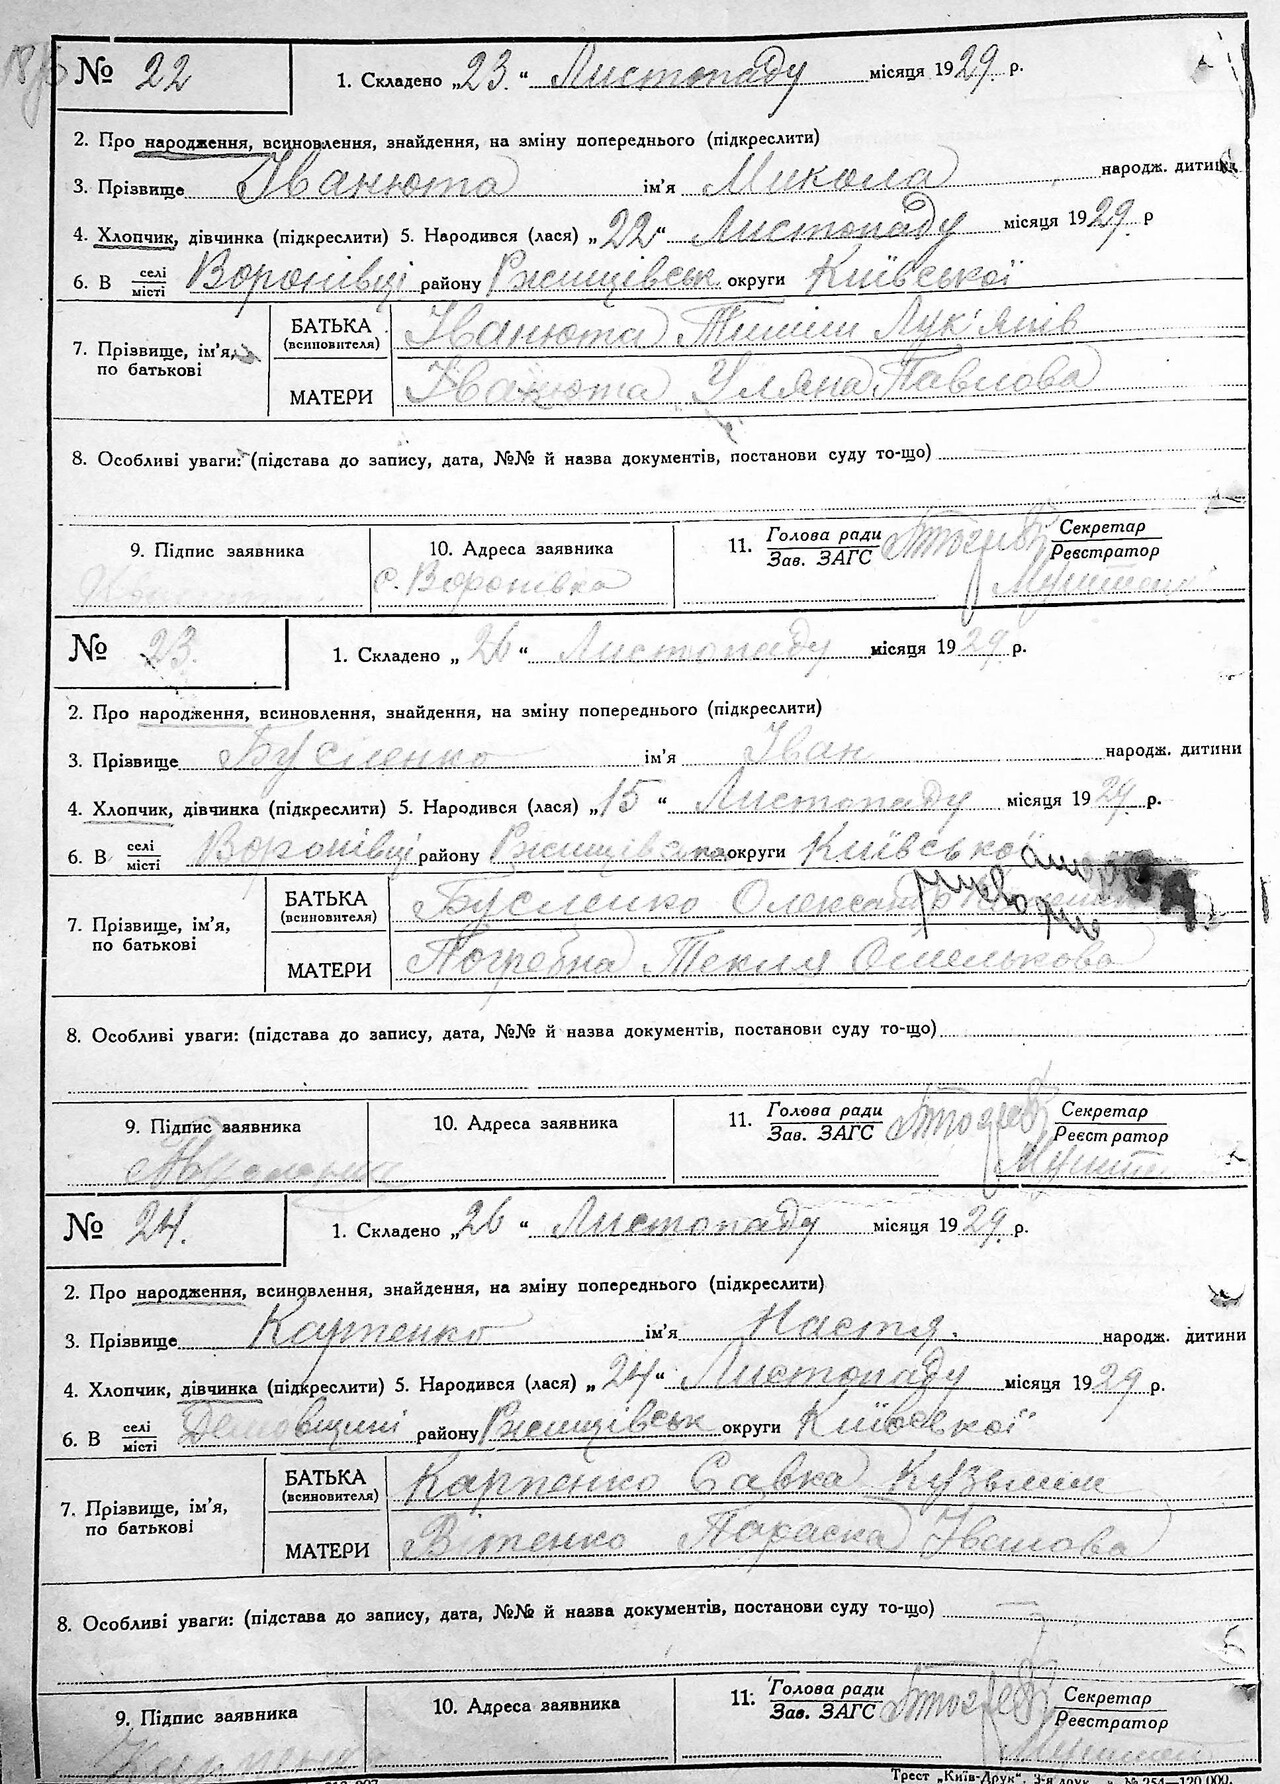 № 22 1. Складено „23.“ Листопаду місяця 1929. р.
2. Про народження, всиновлення, знайдення, на зміну попереднього (підкреслити)
3. Прізвище Іванюта ім'я Микола народж. дитини
4. Хлопчик, дівчинка (підкреслити) 5. Народився (лася) „22“ Листопаду місяця 1929. р
6. В селі Воронівці району Ржищівськ округи Київської
місті
7. Прізвище, ім'я, по батькові
БАТЬКА (всиновителя) Іванюта Тиміш Лук'янів
МАТЕРИ Іванюта Уляна Павлова
8. Особливі уваги: (підстава до запису, дата, №№ й назва документів, постанови суду то-що)
9. Підпис заявника 10. Адреса заявника 11. Голова ради Секретар
Зав. ЗАГС Реєстратор
с. Воронівка
№ 23. 1. Складено „26“ Листопаду місяця 1929. р.
2. Про народження, всиновлення, знайдення, на зміну попереднього (підкреслити)
3. Прізвище Бусленко ім'я Іван народж. дитини
4. Хлопчик, дівчинка (підкреслити) 5. Народився (лася) „15“ Листопаду місяця 1929. р.
6. В селі Воронівці району округи Київської
місті
7. Прізвище, ім'я, по батькові
БАТЬКА (всиновителя) Бусленко
МАТЕРИ Погребна Текля Омелькова
8. Особливі уваги: (підстава до запису, дата, №№ й назва документів, постанови суду то-що)
9. Підпис заявника 10. Адреса заявника 11. Голова ради Секретар
Зав. ЗАГС Реєстратор
№ 24. 1. Складено „26“ Листопаду місяця 1929. р.
2. Про народження, всиновлення, знайдення, на зміну попереднього (підкреслити)
3. Прізвище Карпенко ім'я Настя. народж. дитини
4. Хлопчик, дівчинка (підкреслити) 5. Народився (лася) „24“ Листопаду місяця 1929 р.
6. В селі району Ржищівськ округи Київської
місті
7. Прізвище, ім'я, по батькові
БАТЬКА (всиновителя) Карпенко Савка Кузьмин
МАТЕРИ Вітенко Параска Іванова
8. Особливі уваги: (підстава до запису, дата, №№ й назва документів, постанови суду то-що)
9. Підпис заявника 10. Адреса заявника 11. Голова ради Секретар
Зав. ЗАГС Реєстратор
Трест „Київ-Друк“.